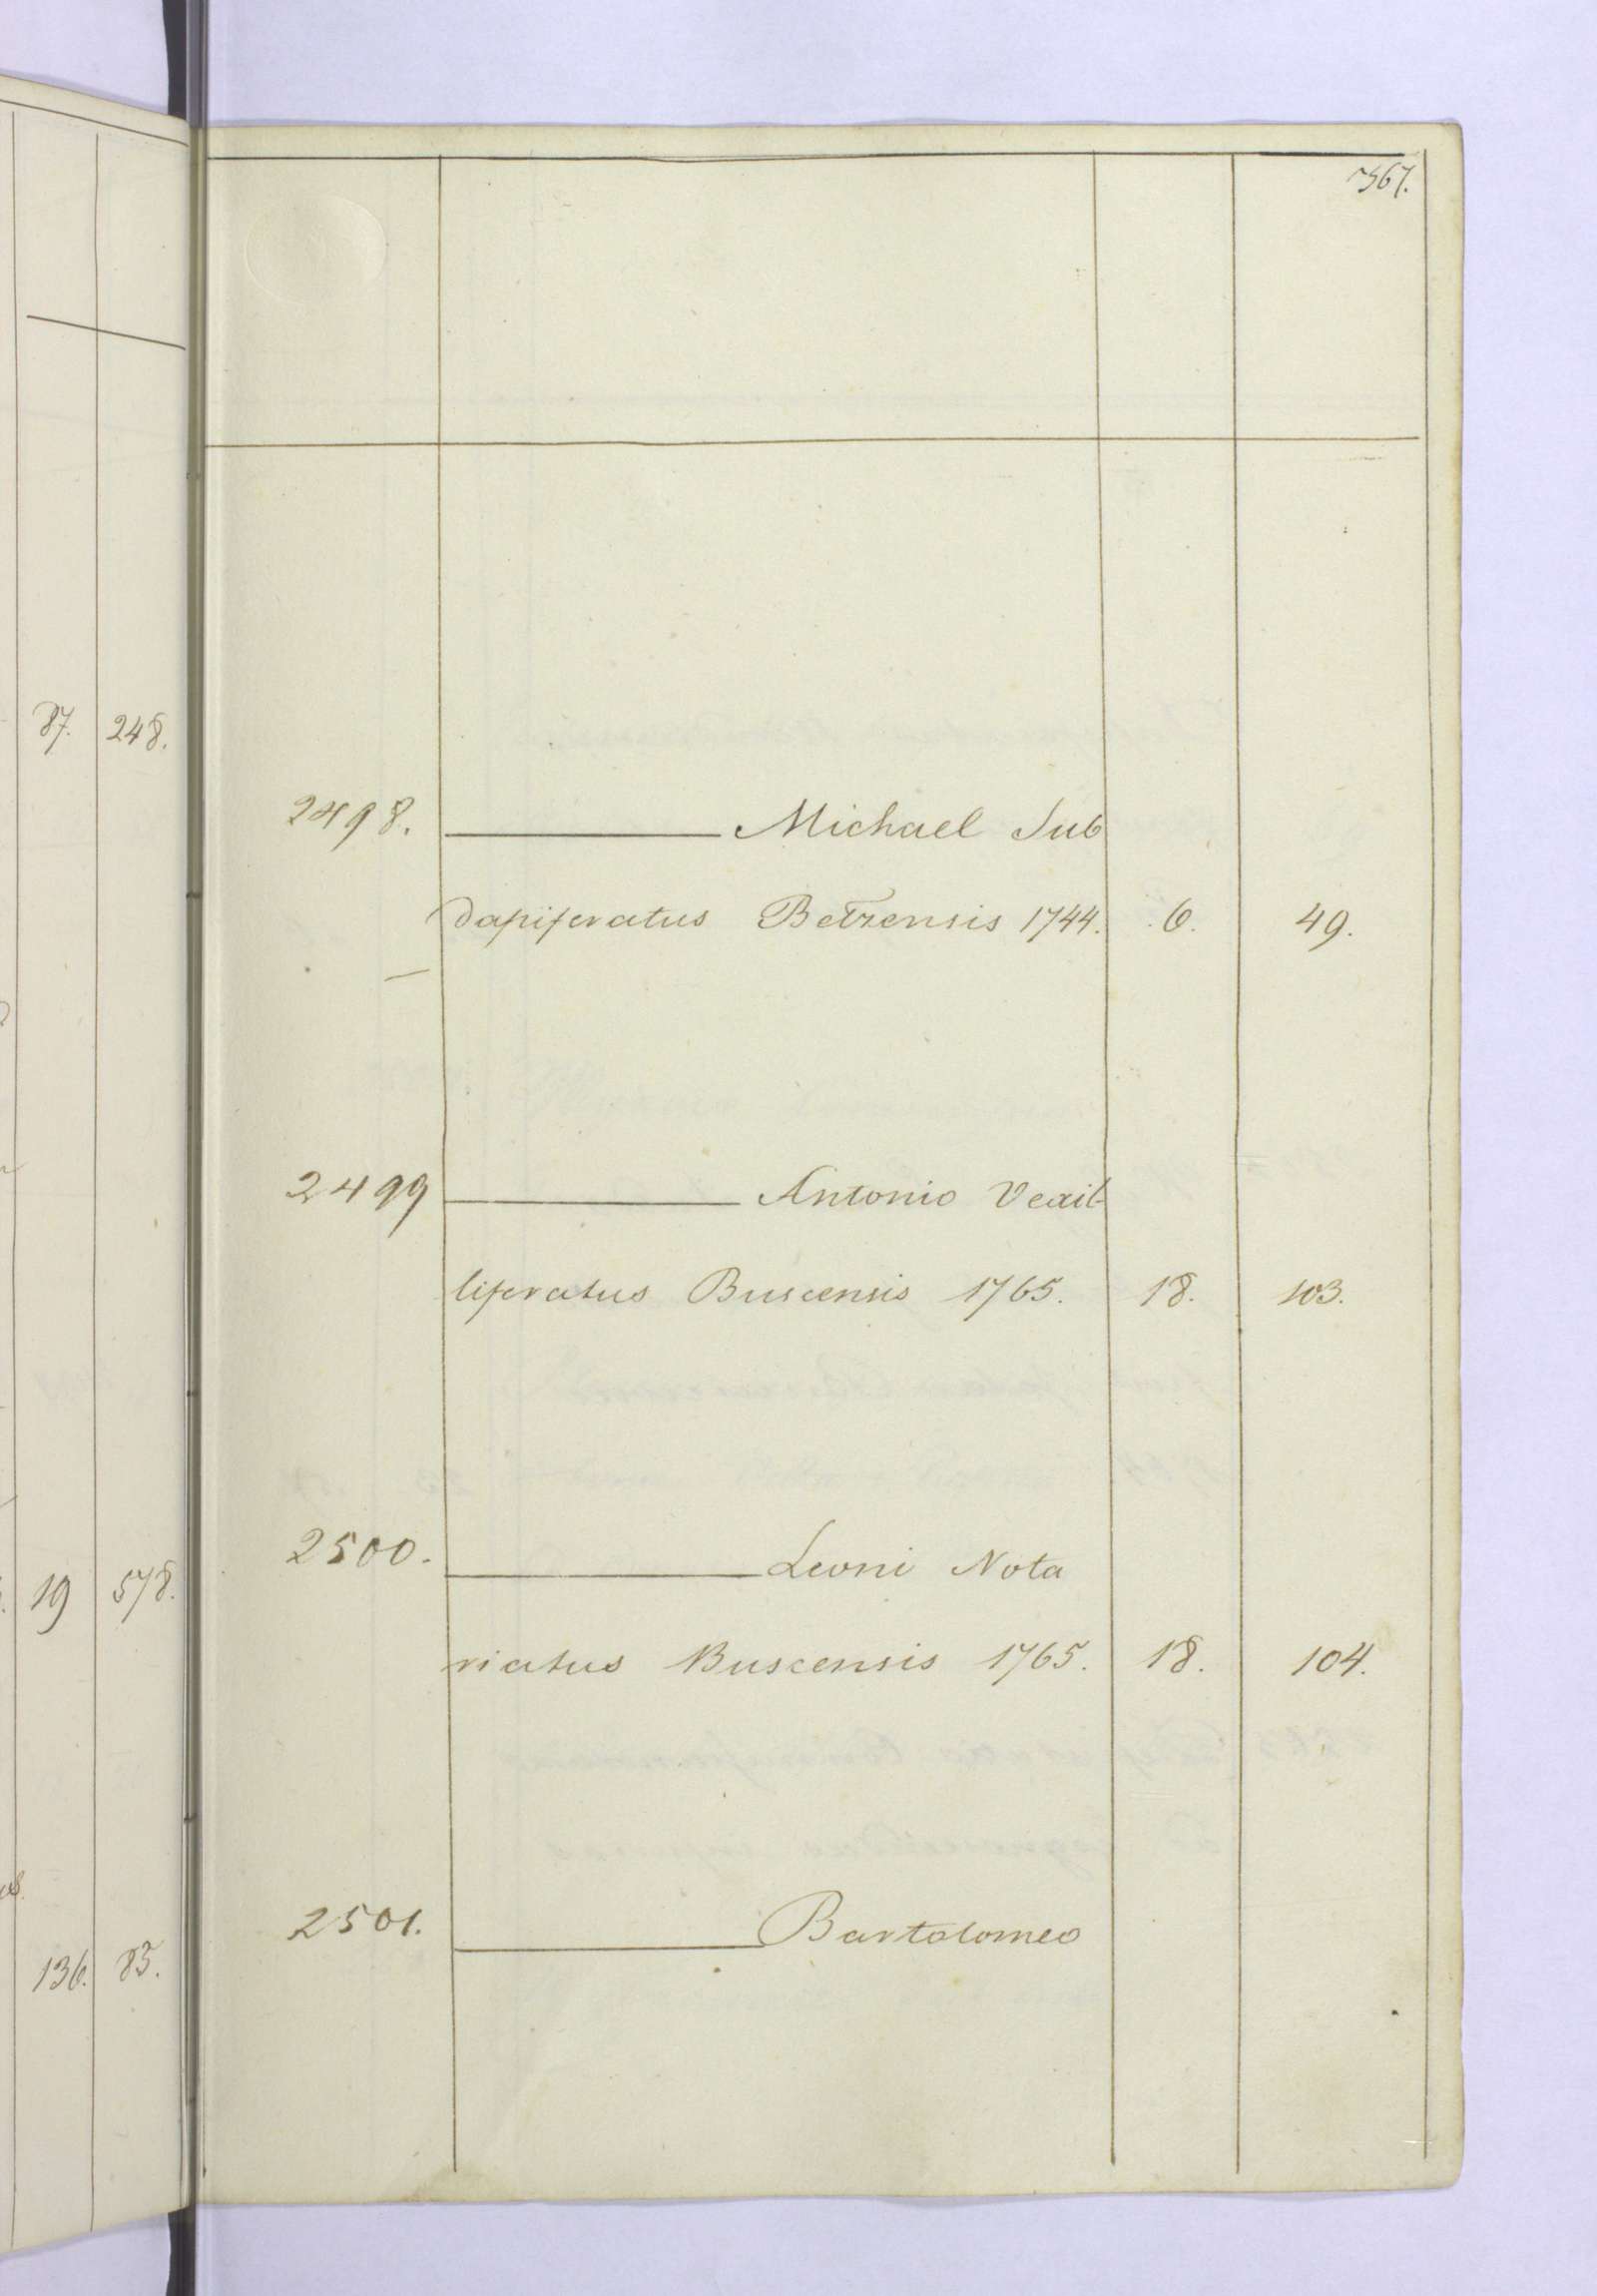 367.
87. 248.
2498. Michael Sub
dapiferatus Betzensis 1744. 6. 49.
2499 Antonio Vexil-
liferatus Buscensis 1765. 18. 103.
2500. Leoni Nota
riatus Buscensis 1765. 18. 104.
19 578.
2501. Bartolomeo
136. 83.